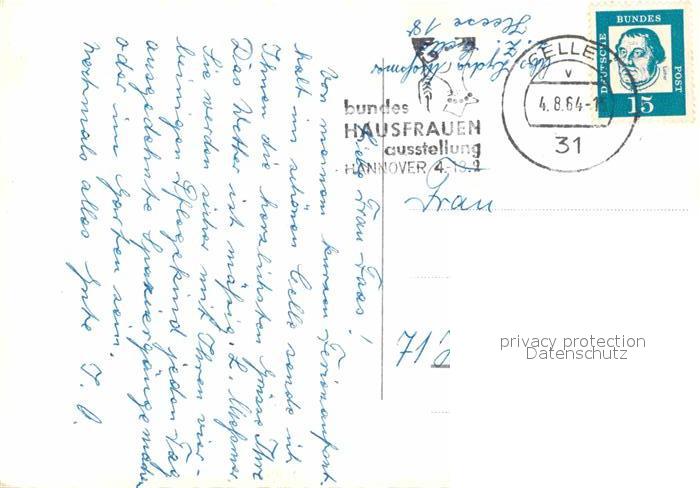 Abs. Lydia Meßmer
Celle
Heese 18
DEUTSCHE BUNDESPOST
15
CELLE
v
4.8.64-1
31
bundes
HAUSFRAUEN
ausstellung
HANNOVER 4.-13.9
Frau
71
privacy protection
Datenschutz
Liebe Frau Faas!
Von meinem kurzen Ferienaufent-
halt im schönen Celle sende ich
Ihnen die herzlichsten Grüsse Ihre
Das Wetter ist mäßig. L. Meßmer.
Sie werden sicher mit Ihren vier-
beinigen Pflegekind jeden Tag
ausgedehnte Spaziergänge machen
oder im Garten sein.
Nochmals alles Gute I. O.